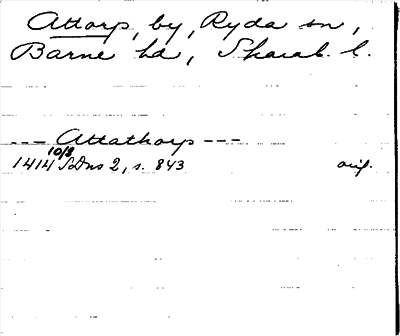 Attorp, by, Ryda sn,
Barne hd, Skarab. l.
--- Attathorp ---
1414 10/8 SDns 2, s. 843 orig.